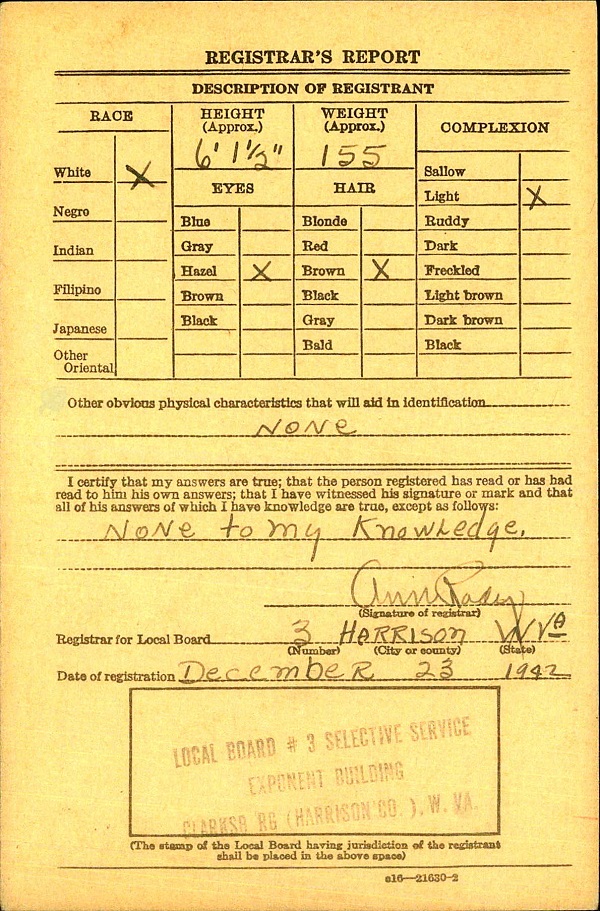 REGISTRAR'S REPORT
DESCRIPTION OF REGISTRANT
RACE
HEIGHT
(Approx.)
WEIGHT
(Approx.)
COMPLEXION
6' 1½"
155
White X
Negro
Indian
Filipino
Japanese
Other
Oriental
EYES
Blue
Gray
Hazel X
Brown
Black
HAIR
Blonde
Red
Brown X
Black
Gray
Bald
Sallow
Light X
Ruddy
Dark
Freckled
Light brown
Dark brown
Black
Other obvious physical characteristics that will aid in identification
NONE
I certify that my answers are true; that the person registered has read or has had
read to him his own answers; that I have witnessed his signature or mark and that
all of his answers of which I have knowledge are true, except as follows:
NONE to my Knowledge.
(Signature of registrar)
Registrar for Local Board 3 HARRISON W VA
(Number) (City or county) (State)
Date of registration December 23 1942
LOCAL BOARD # 3 SELECTIVE SERVICE
EXPONENT BUILDING
CLARKSB RG (HARRISON CO. ), W. VA.
(The stamp of the Local Board having jurisdiction of the registrant
shall be placed in the above space)
c16—21630-2